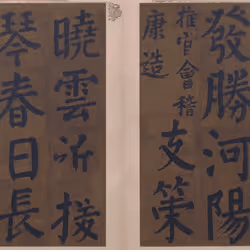 發勝河陽
推官會稽
康造
支筞
曉雲近援
琴春日長